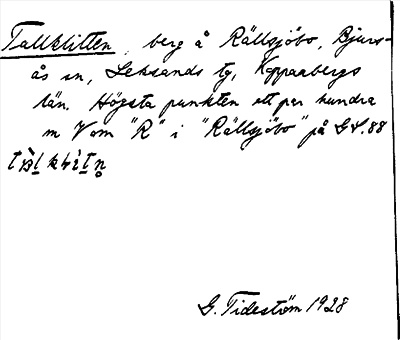 Tallklitten, berg å Rällsjöbo, Bjurs-
ås sn, Leksands tg, Kopparbergs
län. Högsta punkten ett par hundra
m V om "R" i "Rällsjöbo" på GS. 88
G. Tideström 1928